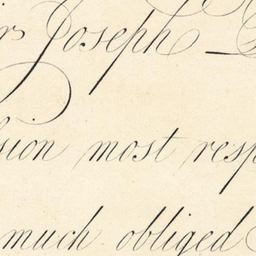 Joseph
sion most resp
much obliged